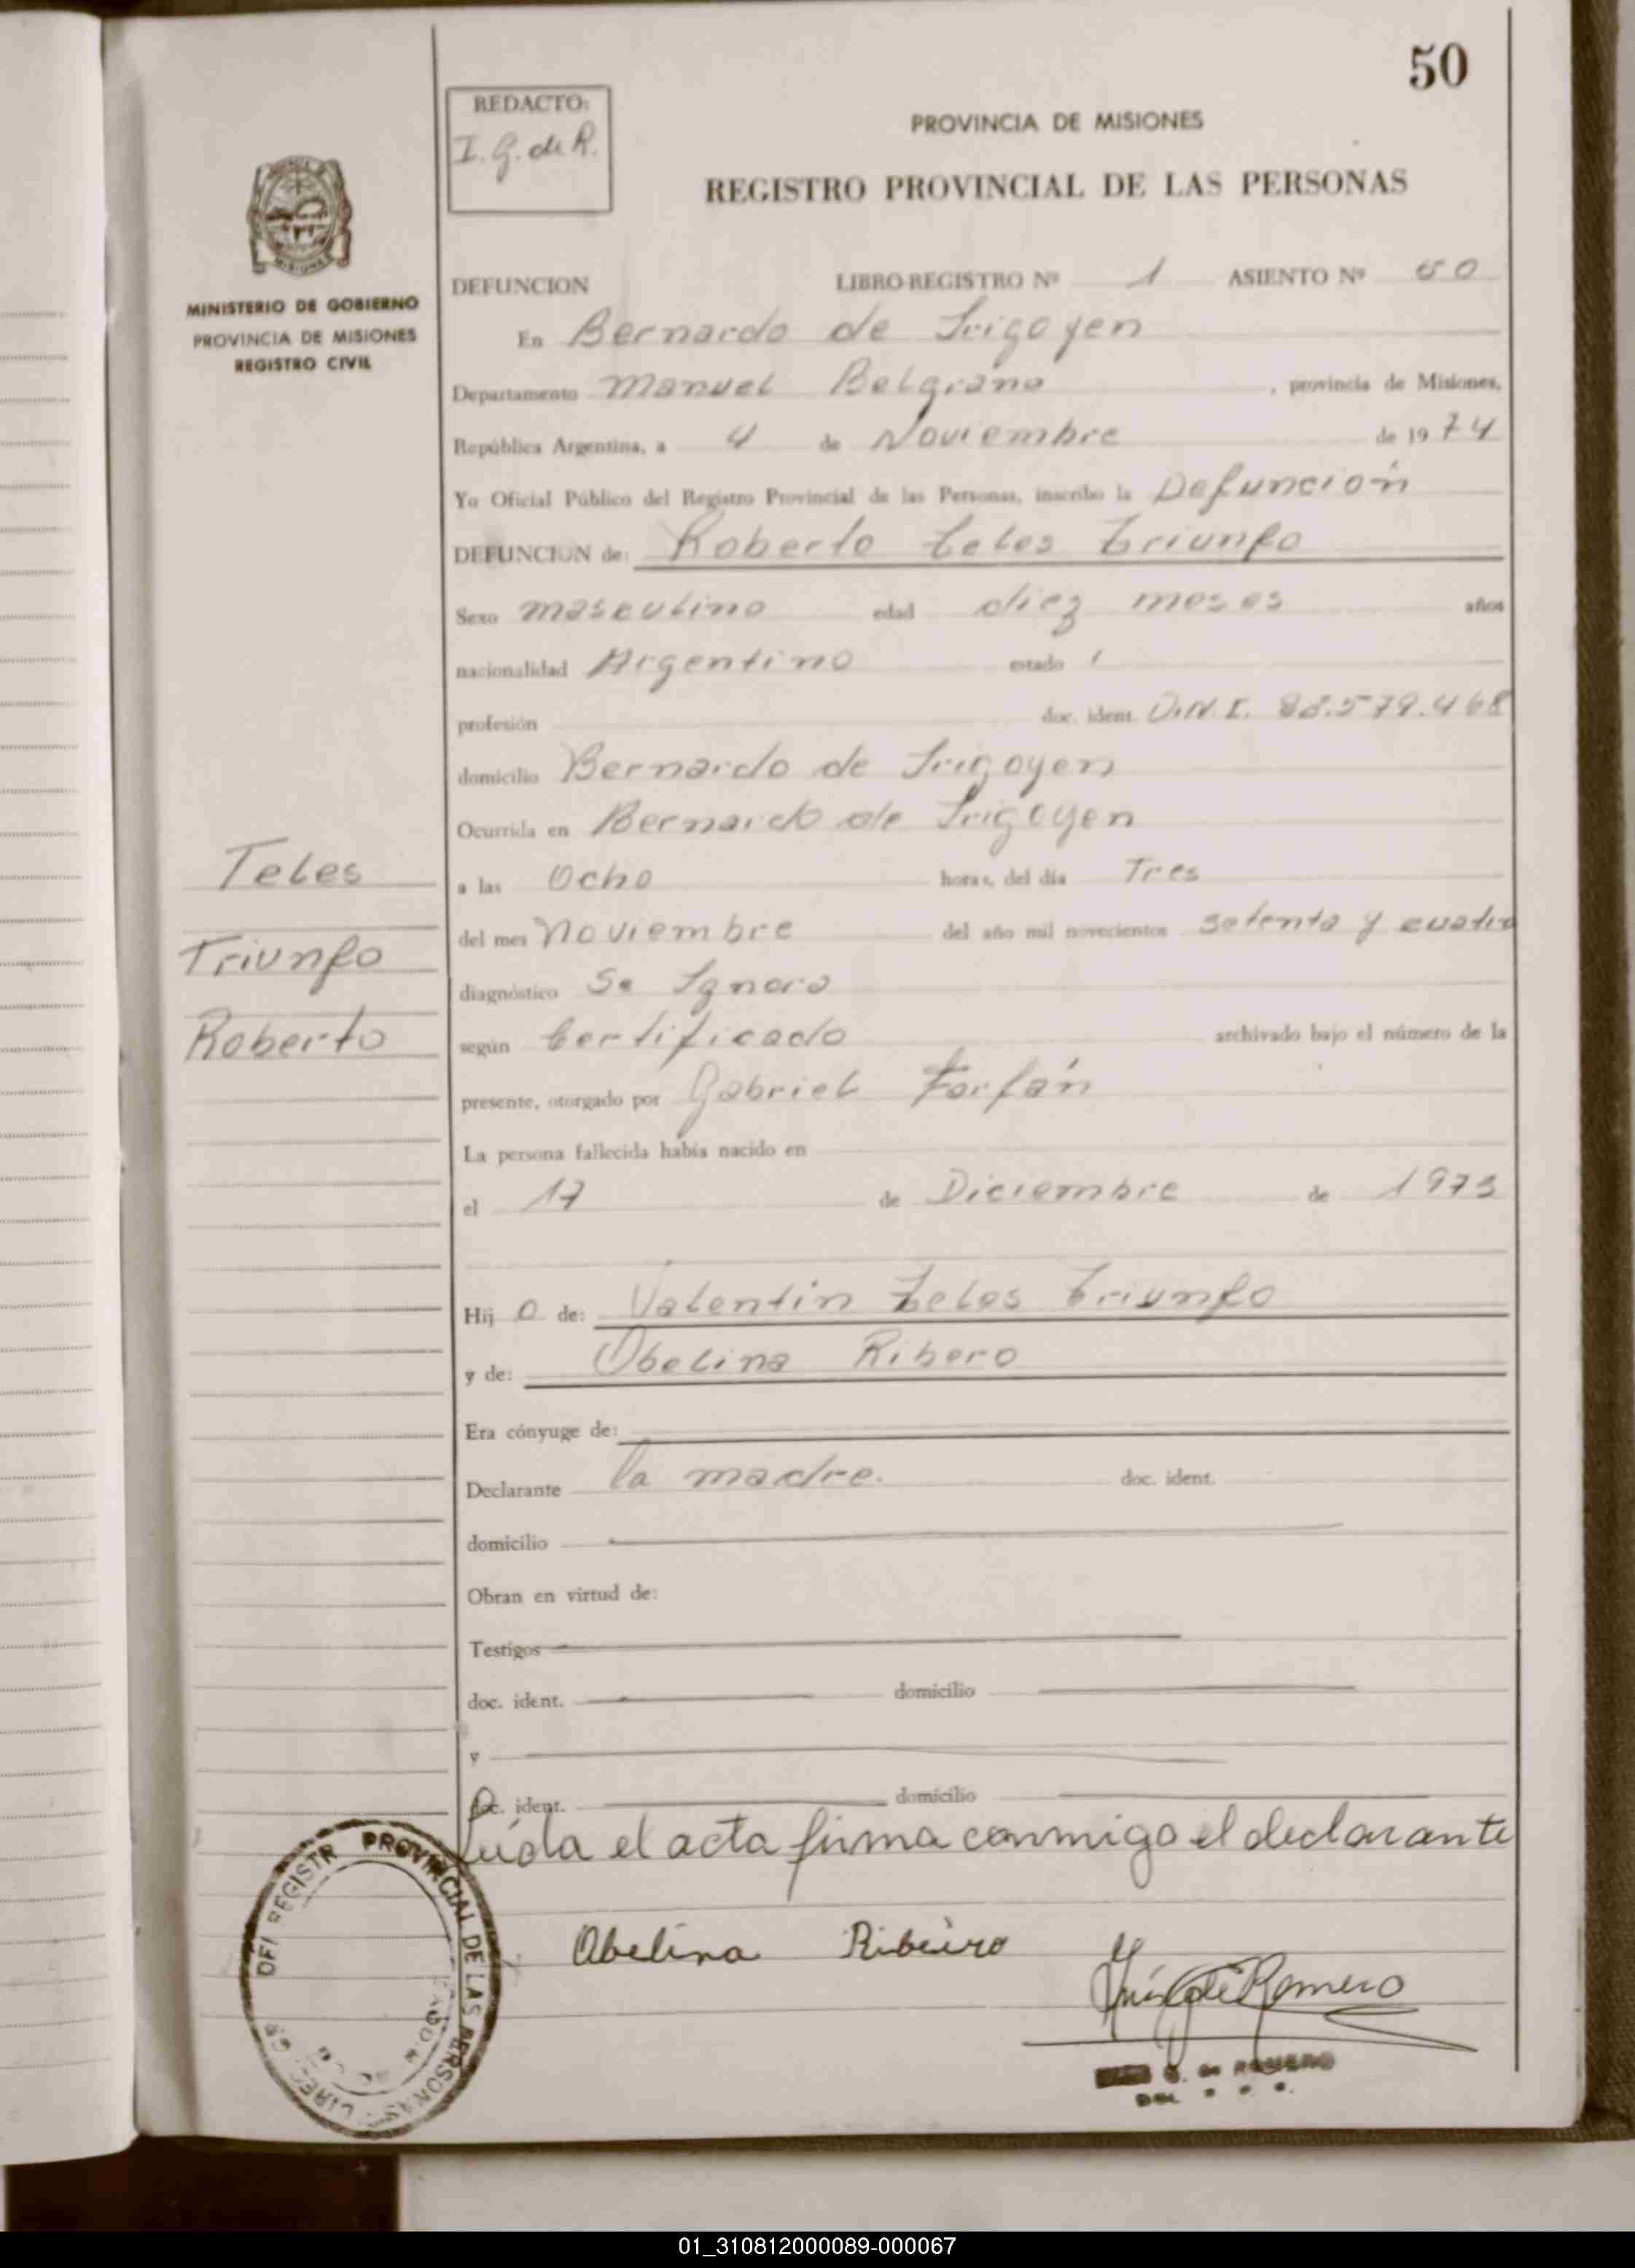 50
REDACTO:
I. G. de R.
PROVINCIA DE MISIONES
REGISTRO PROVINCIAL DE LAS PERSONAS
MISIONES
MINISTERIO DE GOBIERNO
PROVINCIA DE MISIONES
REGISTRO CIVIL
DEFUNCION LIBRO-REGISTRO Nº 1 ASIENTO Nº 50
En Bernardo de Irigoyen
Departamento Manuel Belgrano, provincia de Misiones,
República Argentina, a 4 de Noviembre de 1974
Yo Oficial Público del Registro Provincial de las Personas, inscribo la Defunción
DEFUNCION de: Roberto Teles Triunfo
Sexo masculino edad diez meses años
nacionalidad Argentino estado
profesión doc. ident. D.N.I.
domicilio Bernardo de Irigoyen
Ocurrida en Bernardo de Irigoyen
a las Ocho horas, del día Tres
del mes Noviembre del año mil novecientos setenta y cuatro
diagnóstico Se Ignora
según Certificado archivado bajo el número de la
presente, otorgado por Gabriel Farfán
La persona fallecida había nacido en
el 17 de Diciembre de 1973
Teles
Triunfo
Roberto
Hij o de: Valentin Teles Triunfo
y de: Obelina Ribero
Era cónyuge de:
Declarante la madre. doc. ident.
domicilio
Obran en virtud de:
Testigos
doc. ident. domicilio
y
doc. ident. domicilio
Leída el acta firma conmigo el declarante
Obelina Ribeiro
Romero
G. de ROMERO
REGISTR PROVINCIAL DE LAS PERSONAS
01_310812000089-000067